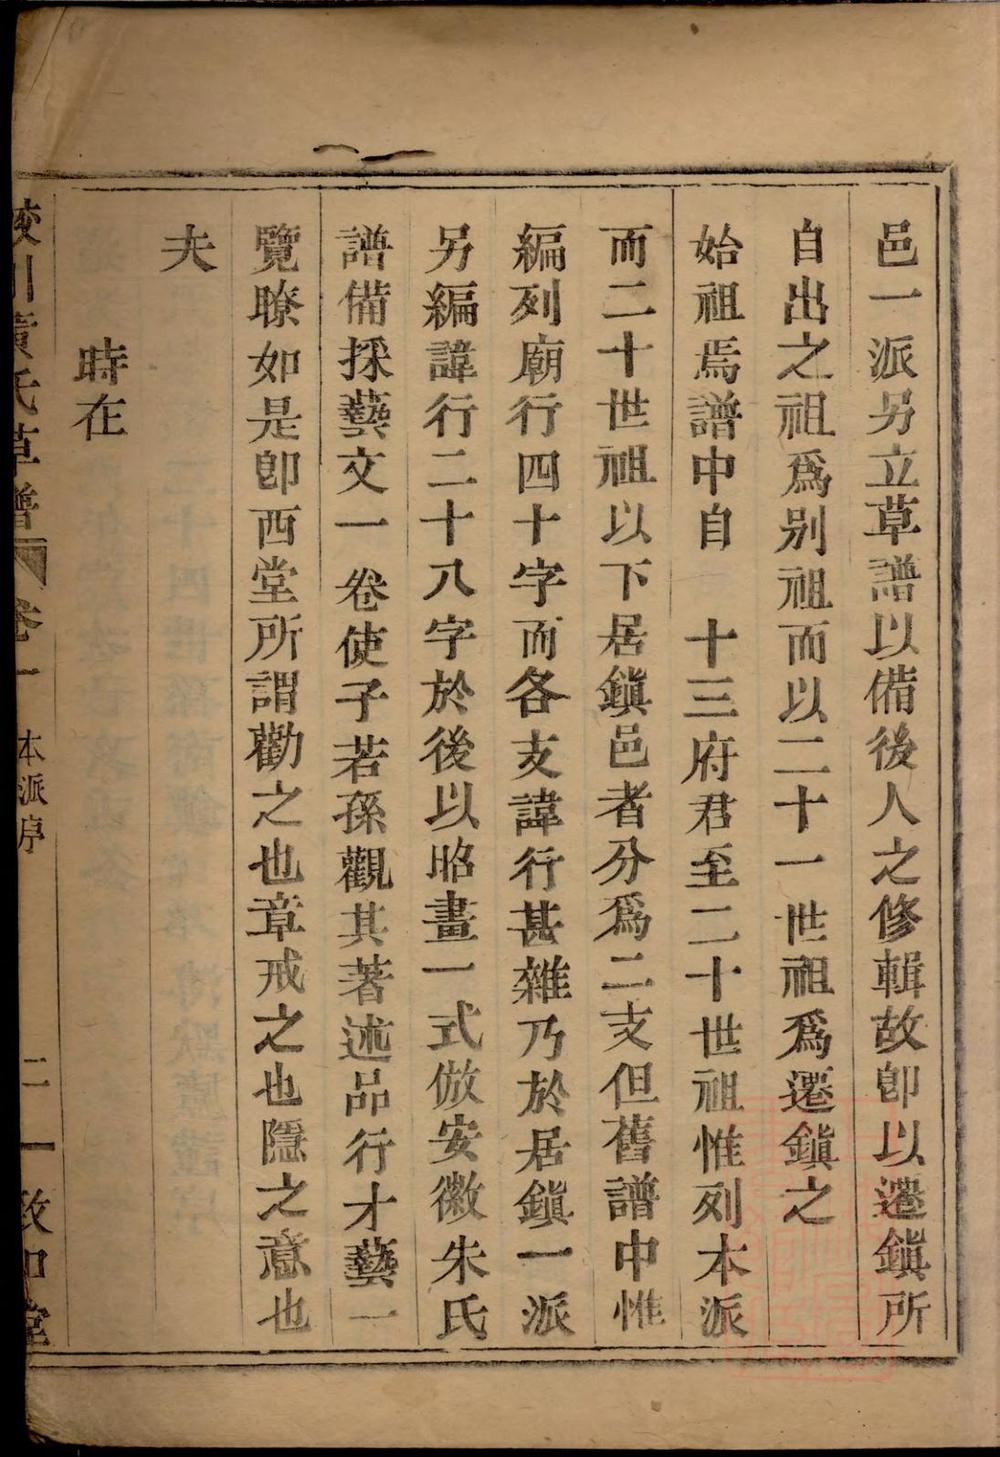 邑一派另立草譜以備後人之修輯故卽以遷鎭所
自出之祖爲别祖而以二十一世祖爲遷鎭之
始祖焉譜中自　十三府君至二十世祖惟列本派
而二十世祖以下居鎭邑者分爲二支但舊譜中惟
編列廟行四十字而各支諱行甚雜乃於居鎭一派
另編諱行二十八字於後以昭畫一式倣安徽朱氏
譜備採藝文一卷使子若孫觀其著述品行才藝一
覽瞭如是卽西堂所謂勸之也章戒之也隱之意也
夫
時在
川黃氏草譜 卷一 本派序 二 敦和堂